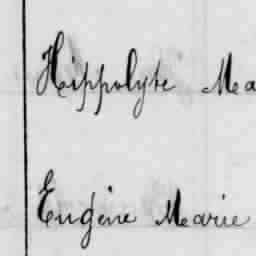 Hippolyte Ma
Eugène Marie